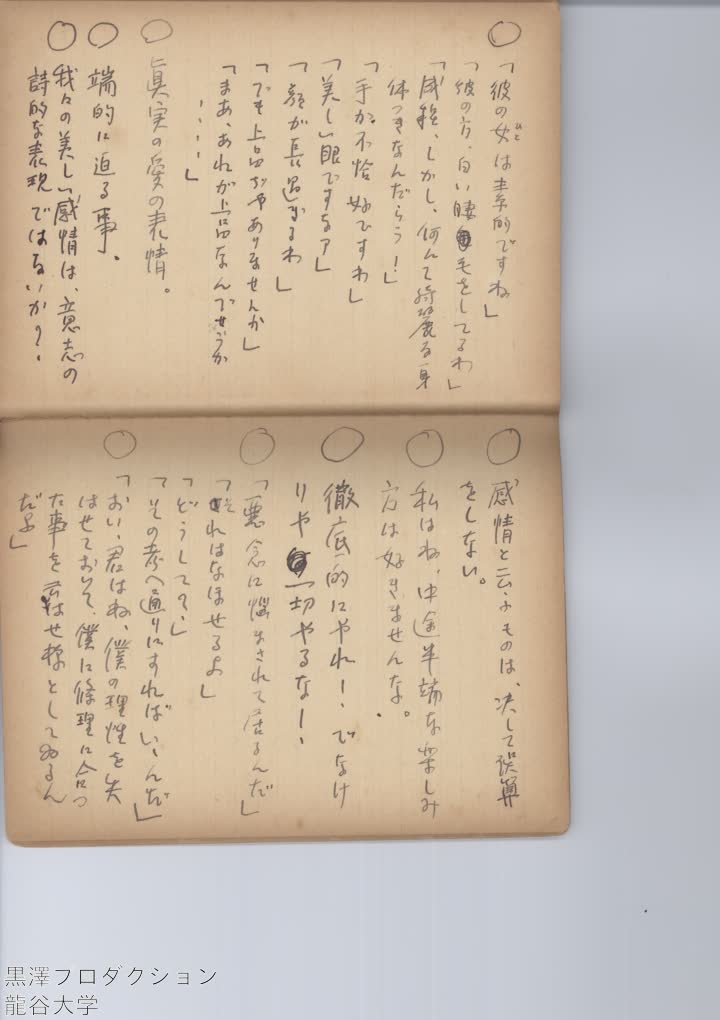 ○「彼の女は素的ですね」
「彼の方、白い腰毛をしてるわ」
「成程、しかし、何んて綺麗な身
体つきなんだらう!」
「手が不恰好ですわ」
「美しい眼ですなア」
「顔が長過ぎるわ」
「でも上品ぢやありませんか」
「まあ、あれが上品なんでせうか
、、、、」
○真実の愛の表情。
○端的に迫る事。
○我々の美しい感情は、意志の
詩的な表現ではないか?、
○「感情と云ふものは、決して誤算
をしない。
○私はね、中途半端な楽しみ
方は好きませんな。
○徹底的にやれ!、でなけ
りや一切やるな!、
○「悪念に悩まされて居るんだ」
「それはなほせるよ」
「どうして?」
「その考へ通りにすればいゝんだ」
○「おい、君はね、僕の理性を失
はせておいて、僕に條理に合つ
た事を云はせ様としてゐるん
だよ」
黒澤プロダクション
龍谷大学